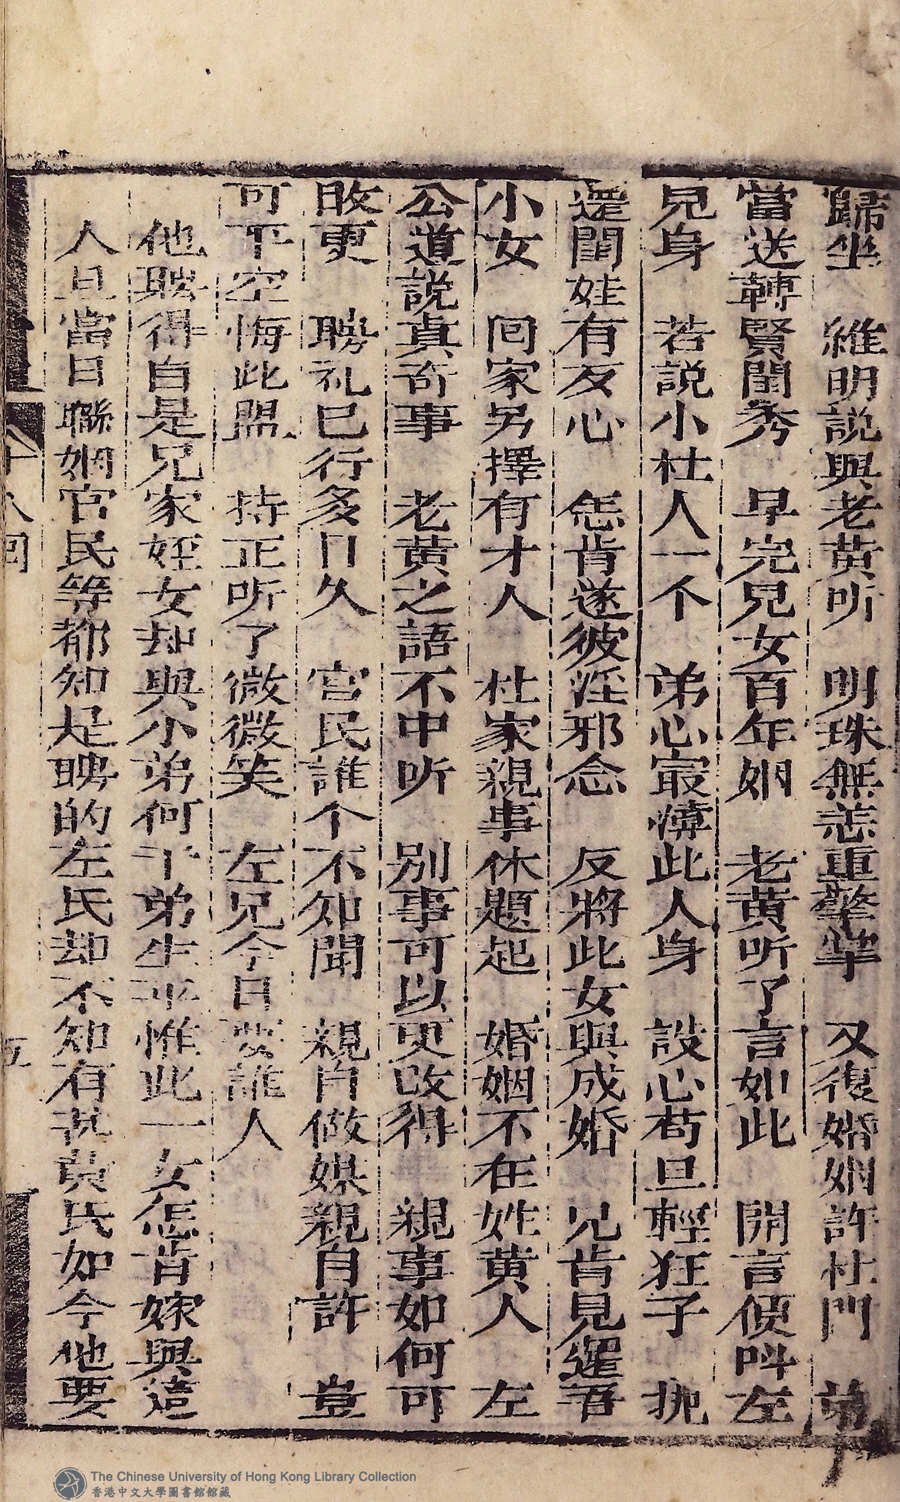 歸坐　維明說與老黄听　明珠無恙重擎掌　又復婚姻許杜門　弟
當送轉賢閨秀　早完兒女百年姻　老黄听了言如此　開言便呌左
兄身　若說小杜人一个　弟心㝡薄此人身　設心苟且輕狂子　抛
還閨娃有反心　怎肯遂彼淫邪念　反將此女與成婚　兄肯見還吾
小女　回家另擇有才人　杜家親事休題起　婚姻不在姓黄人　左
公道說真奇事　老黄之語不中听　别事可以更改得　親事如何可
改更　聘礼已行多日久　官民誰个不知聞　親自做媒親自許　豈
可平空悔此盟　持正听了微微笑　左兄今日要誰人
他聘得自是兄家姪女却與小弟何干弟生平惟此一女怎肯嫁與這
人且當日聯姻官民等都知是聘的左氏却不知有甚黄氏如今他要
十八回
五
The Chinese University of Hong Kong Library Collection
香港中文大學圖書館館藏